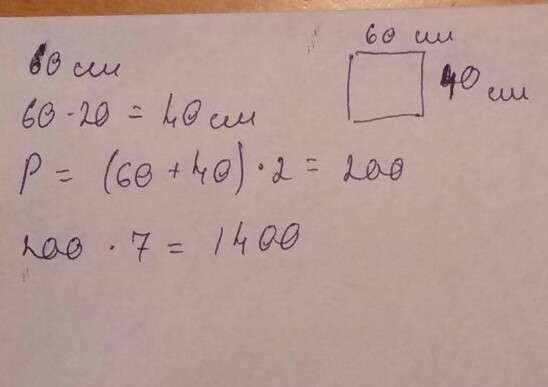 60 см
60 - 20 = 40 см
P = (60 + 40) · 2 = 200
200 · 7 = 1400
60 см
40 см